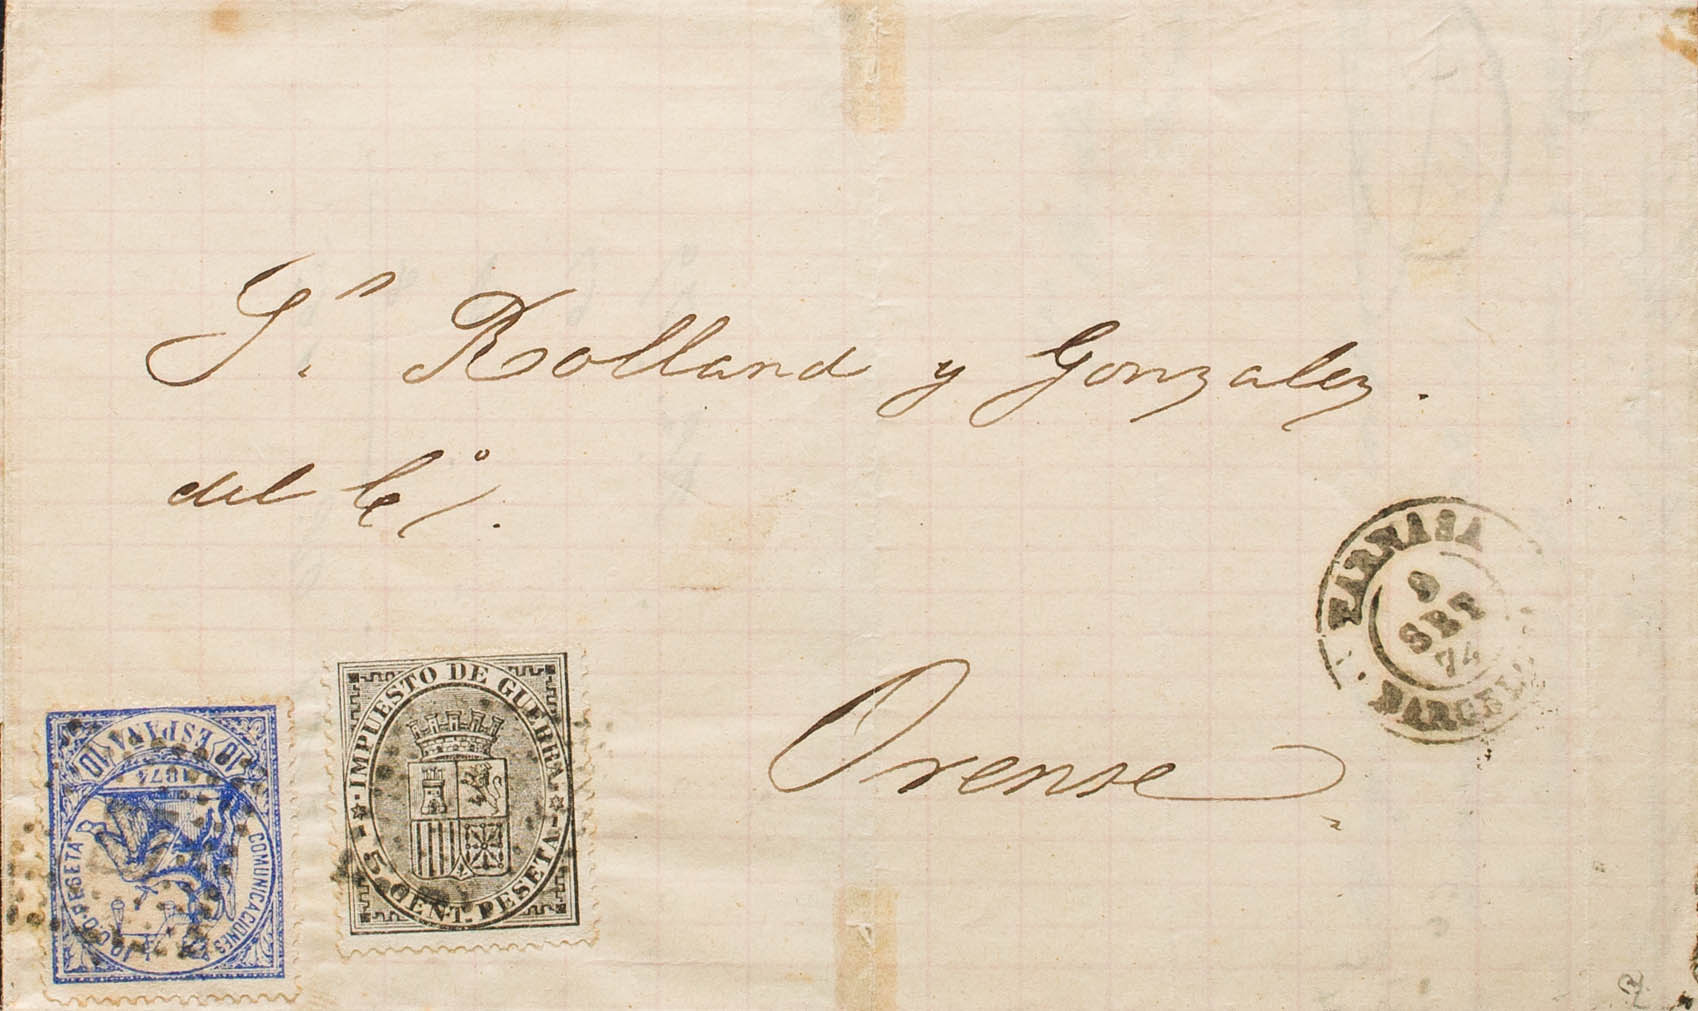 Sʳ. Rolland y Gonzalez.
del Cº/.
Orense
TARRASA
9
SET
74
BARCEL
IMPUESTO DE GUERRA
5 CENT. PESETA
10 ESPAÑA 10
1874
COMUNICACIONES
10 Cº D PESETA